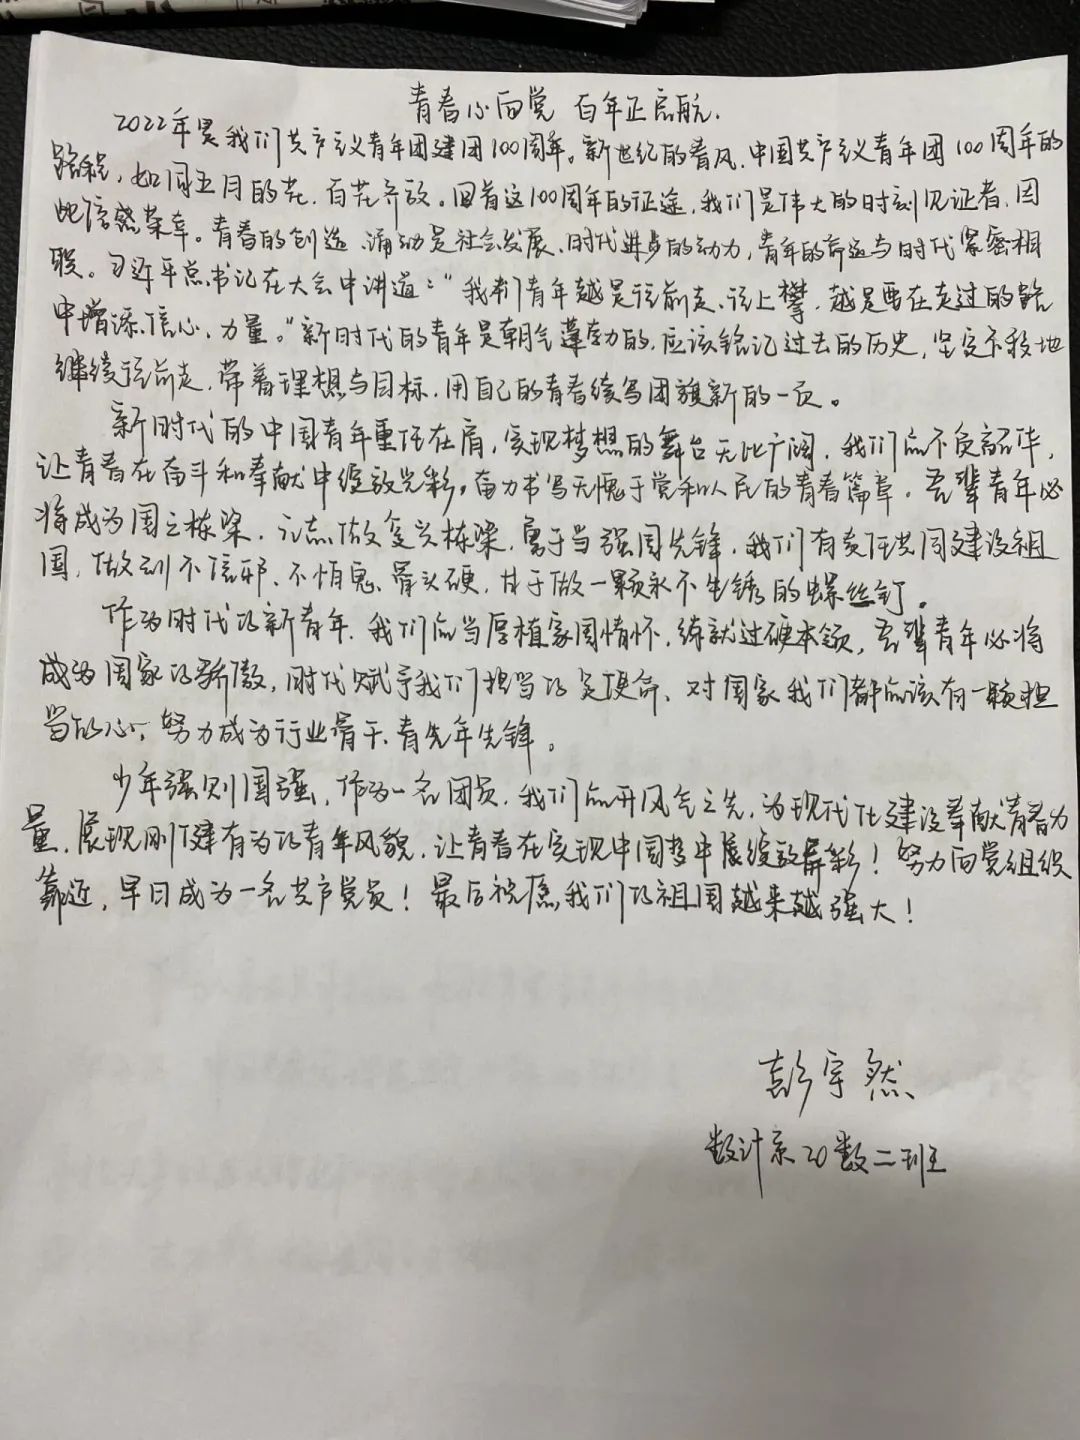 青春心向党 百年正启航.
2022年是我们共产主义青年团建团100周年。新世纪的春风,中国共产主义青年团100周年的
路程,如同五月的花,百花齐放。回首这100周年的征途,我们是伟大的时刻见证者,因
此倍感荣幸。青春的创造涌动是社会发展、时代进步的动力,青年的命运与时代紧密相
联。习近平总书记在大会中讲道:“我们青年越是往前走、往上攀,越是要在走过的路
中增添信心、力量。”新时代的青年是朝气蓬勃的,应该铭记过去的历史,坚定不移地
继续往前走,带着理想与目标,用自己的青春续写团旗新的一页。
新时代的中国青年重任在肩,实现梦想的舞台无比广阔,我们应不负韶华,
让青春在奋斗和奉献中绽放光彩。奋力书写无愧于党和人民的青春篇章,吾辈青年必
将成为国之栋梁,立志做复兴栋梁,勇于当强国先锋,我们有责任共同建设祖
国,做到不信邪、不怕鬼、骨头硬,甘于做一颗永不生锈的螺丝钉。
作为时代的新青年,我们应当厚植家国情怀,练就过硬本领,吾辈青年必将
成为国家的骄傲,时代赋予我们担当的是使命,对国家我们都应该有一颗担
当的心,努力成为行业骨干、青先年先锋。
少年强则国强,作为一名团员,我们应开风气之先,为现代化建设奉献青春力
量,展现刚健有为的青年风貌,让青春在实现中国梦中展绽放异彩!努力向党组织
靠近,早日成为一名共产党员!最后祝愿我们的祖国越来越强大!
彭宇然
数计系20数二班